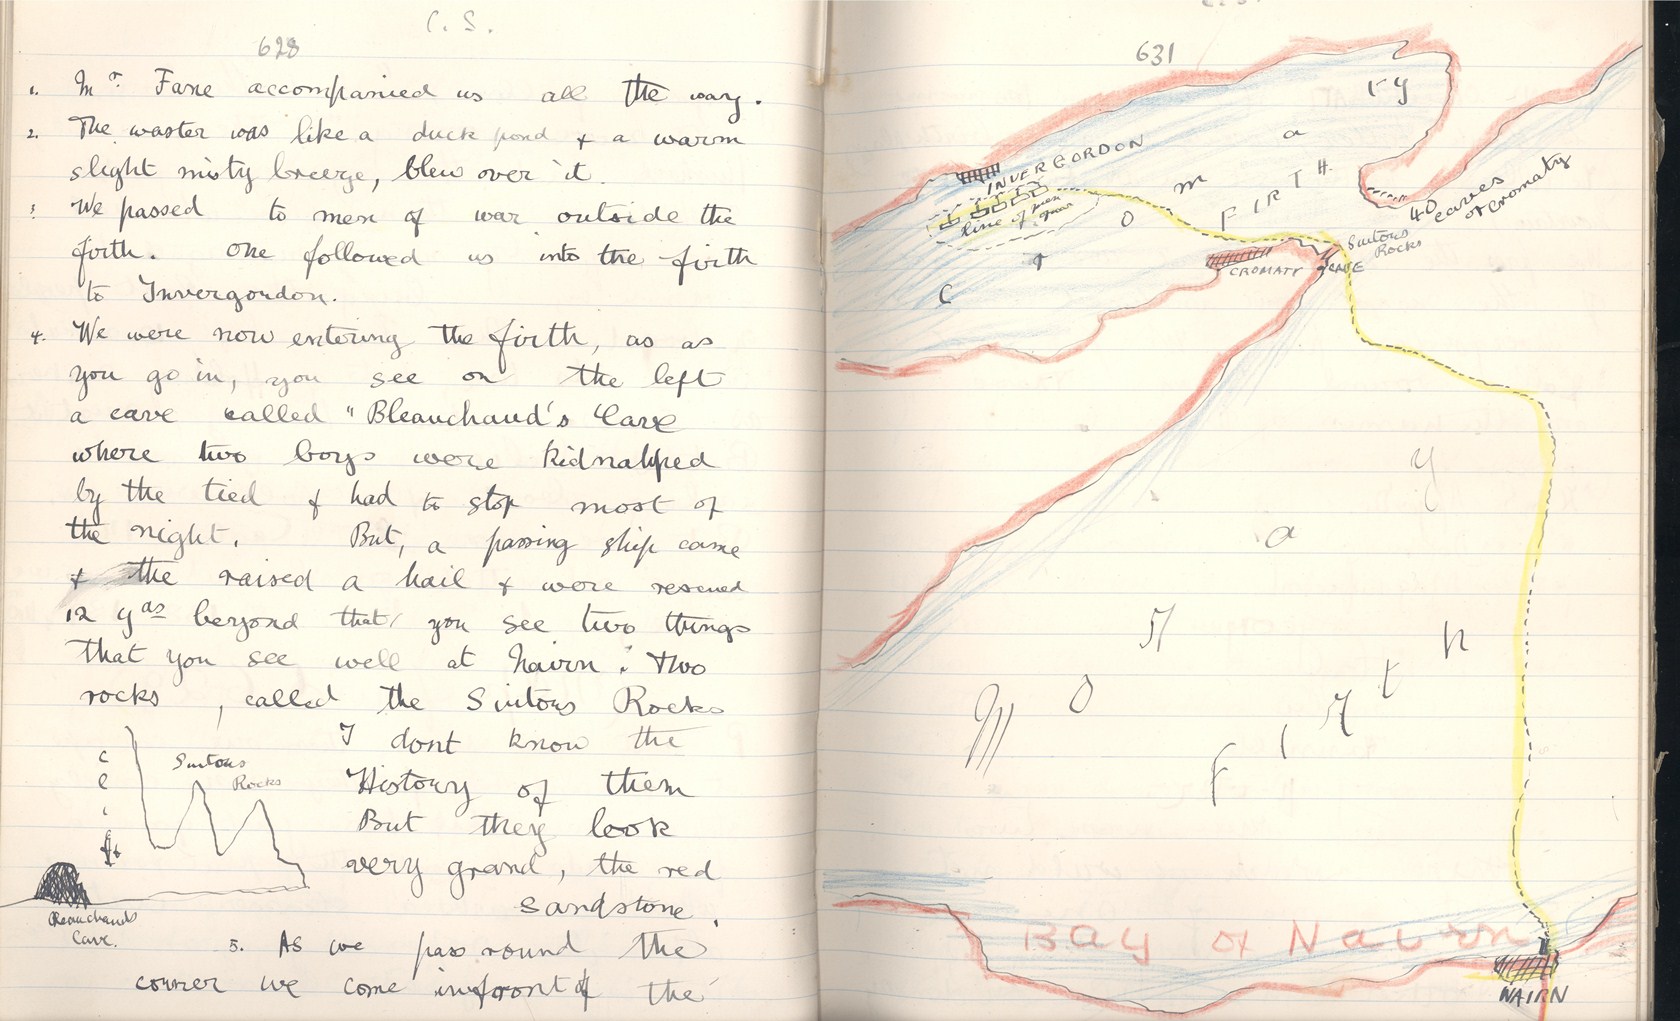 C. S.
628
1. Mr. Fane accompanied us all the way.
2. The waster was like a duck pond & a warm
slight misty breeze, blew over it.
3. We passed to men of war outside the
firth. One followed us into the firth
to Invergordon.
4. We were now entering the firth, as as
you go in, you see on the left
a cave called "Bleauchaud's Cave
where two boys were kidnahped
by the tied & had to stop most of
the night. But, a passing ship came
& the raised a hail & were rescued
12 yds beyond that, you see two things
that you see well at Nairn: two
rocks, called the Suitors Rocks
I dont know the
History of them
But they look
very grand, the red
sandstone.
Suitors
Rocks
Beauchauds
Cave.
5. As we pass round the
corner we come infront of the
631
INVERGORDON
line of men
of war
C r o m a r t y
FIRTH
40 caves
of Cromaty
Suitors
Rocks
CROMATY
CAVE
M o r a y
F i r t h
Bay of Nairn
NAIRN